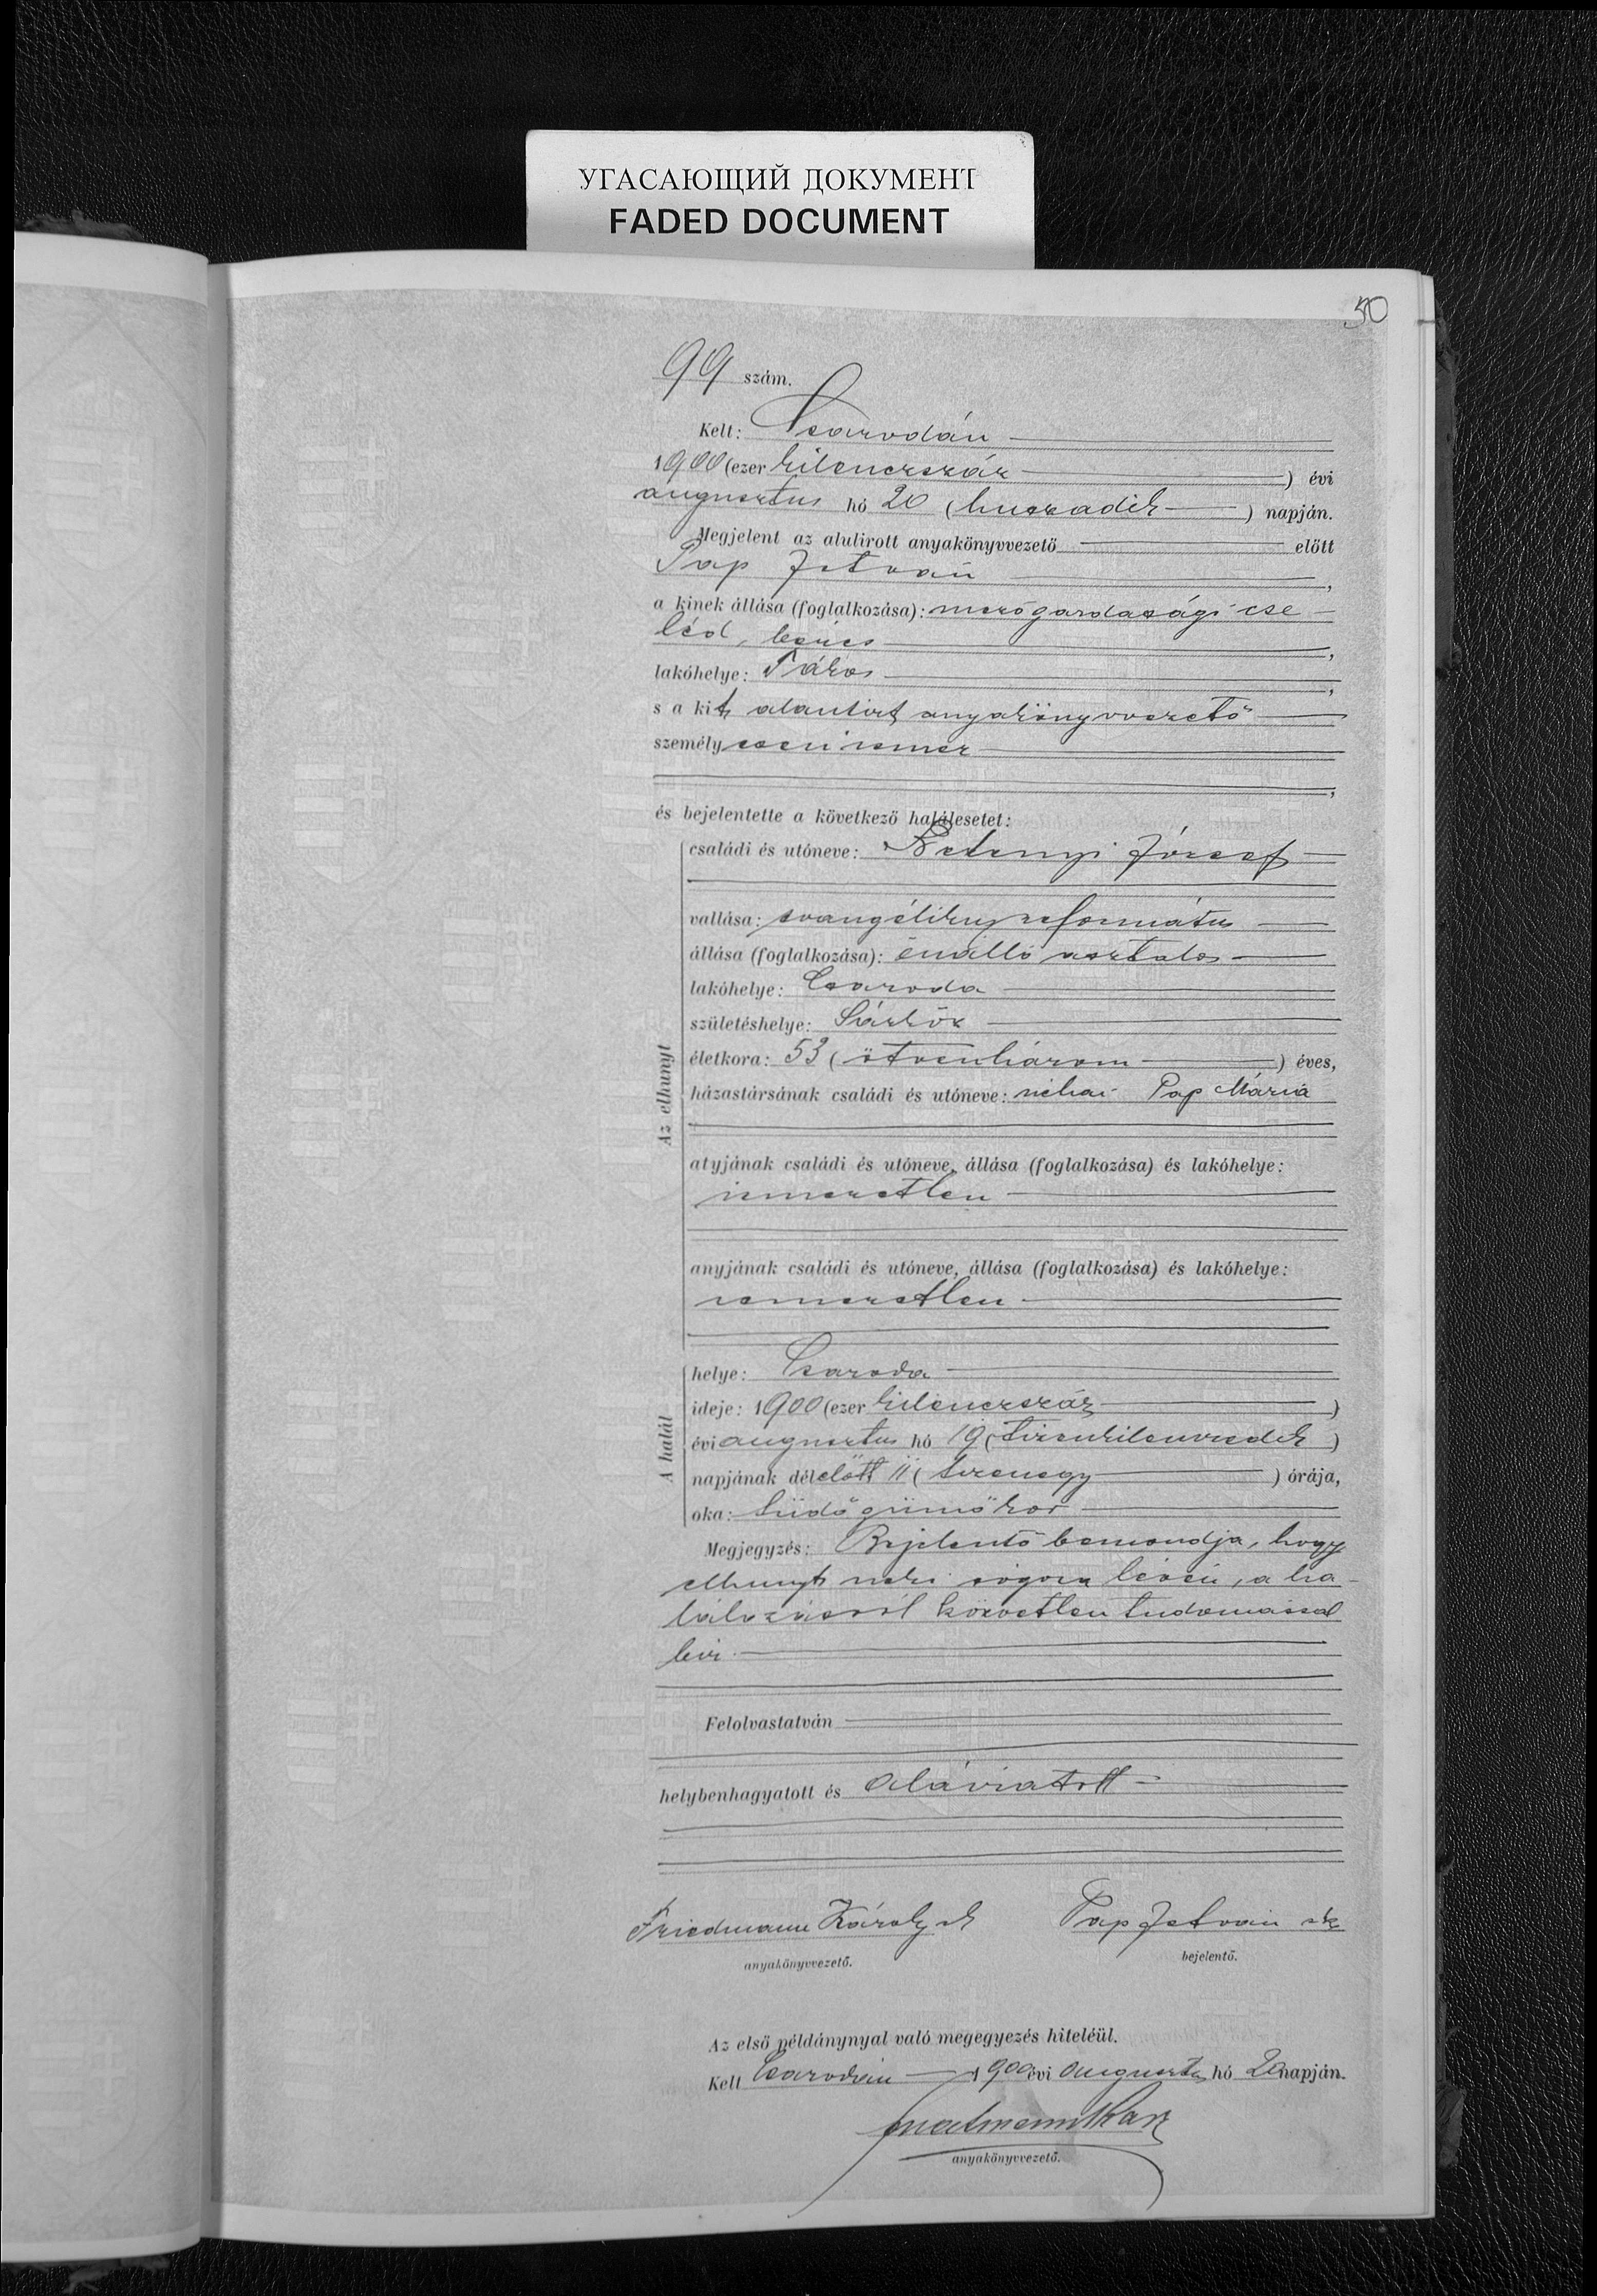 УГАСАЮЩИЙ ДОКУМЕНТ
FADED DOCUMENT
50
99 szám.
Kelt: Csarodán
1900 (ezer kilenczszáz ) évi
augusztus hó 20 (huszadik ) napján.
Megjelent az alulirott anyakönyvvezető előtt
Pap István ,
a kinek állása (foglalkozása): mezőgazdasági cse
léd, ,
lakóhelye: Tákos ,
s a kit alantirt anyakönyvvezető
személyesen ismer
,
és bejelentette a következő halálesetet:
Az elhunyt
családi és utóneve: József
vallása: evangélikus református
állása (foglalkozása): önálló asztalos
lakóhelye: Csaroda
születéshelye: Sárköz
életkora: 53 (ötvenhárom ) éves,
házastársának családi és utóneve: néhai Pap Mária
atyjának családi és utóneve, állása (foglalkozása) és lakóhelye:
ismeretlen
anyjának családi és utóneve, állása (foglalkozása) és lakóhelye:
ismeretlen
A halál
helye: Csaroda
ideje: 1900 (ezer kilenczszáz )
évi augusztus hó 19 (tizenkilenczedik )
napjának délelőtt 11 (tizenegy ) órája,
oka: tüdőgümőkor
Megjegyzés: Bejelentő bemondja, hogy
elhunyt neki sógora lévén, a ha
lálozásról közvetlen tudomással
bir.
Felolvastatván
helybenhagyatott és aláiratott
Friedmann Károly sk Pap István sk
anyakönyvvezető. bejelentő.
Az első példánynyal való megegyezés hiteléül.
Kelt Csarodán 1900 évi augusztus hó 20 napján.
anyakönyvvezető.